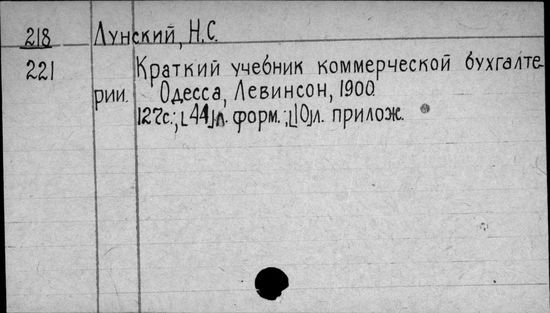 218 Лунский, Н.С.
221 Краткий учебник коммерческой бухгалте-
рии. Одесса, Левинсон, 1900.
127с.; [44]л. форм.; [10]л. прилож.